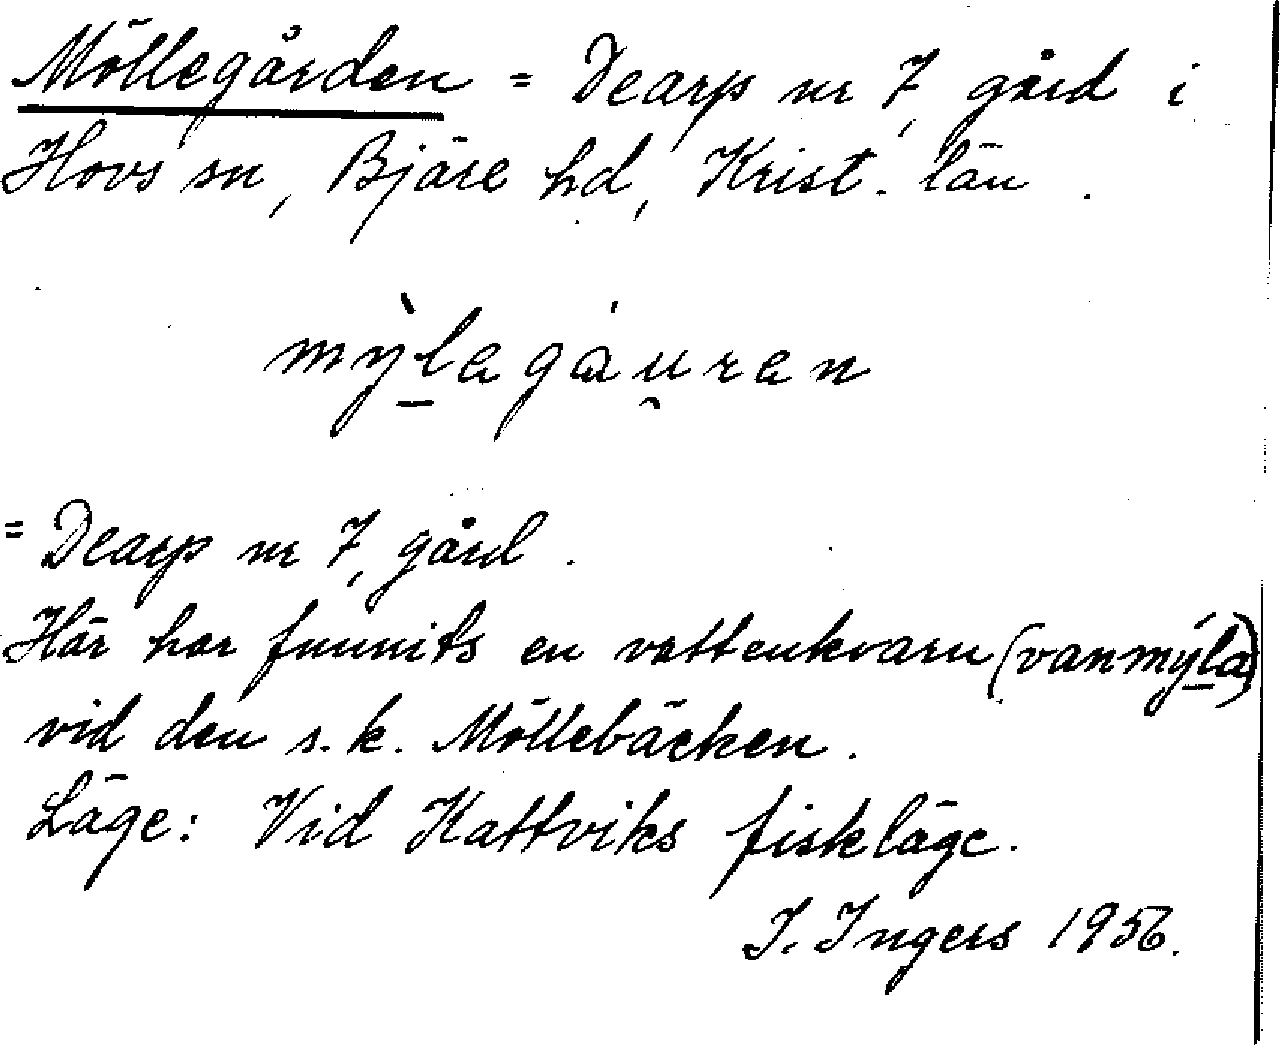 Möllegården = Dearp nr 7, gård i
Hovs sn, Bjäre hd, Krist. län.
mỳl̠agáu̯ran
= Dearp nr 7, gård.
Här har funnits en vattenkvarn (vanmýl̠a)
vid den s.k. Möllebäcken.
Läge: Vid Kattviks fiskläge.
I. Ingers 1956.